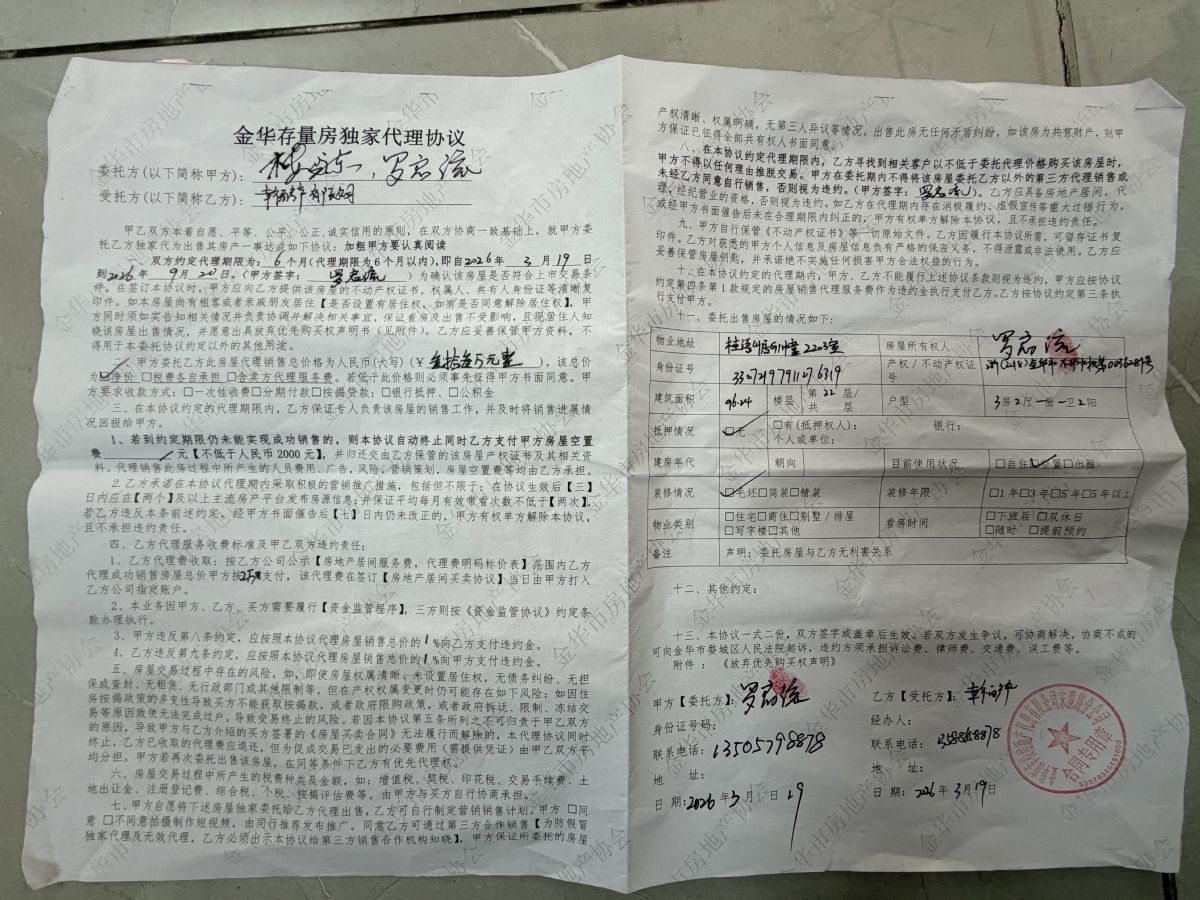 金华存量房独家代理协议
委托方(以下简称甲方): 罗启流
受托方(以下简称乙方):
甲乙双方本着自愿、平等、公平、公正,诚实信用的原则,在双方协商一致基础上,就甲方委
托乙方独家代为出售其房产一事达成如下协议:加粗甲方要认真阅读
双方约定代理期限为:6个月(代理期限为6个月以内),即自2026年 3月 19日
到2026年 9月 20日。(甲方签字: )为确认该房屋是否符合上市交易条
件,在签订本协议时,甲方应向乙方提供该房屋的不动产权证书,权属人、共有人身份证等清晰复
印件。如本房屋尚有租客或者亲戚朋友居住【是否设置有居住权,如有是否同意解除居住权】,甲
方同时须如实告知相关情况并负责协调并解决相关事宜,保证看房及出售不受影响,且现居住人知
晓该房屋出售情况,并愿意出具放弃优先购买权声明书(见附件)。乙方应妥善保管甲方资料,不
得用于本委托协议约定以外的其他用途。
二、甲方委托乙方此房屋代理销售总价格为人民币(大写)(¥ ),该总价
为☑净价 □税费各自承担 □含卖方代理服务费。若低于此价格则必须事先征得甲方书面同意。甲
方要求收款方式:□一次性收费□分期付款□按揭贷款:□银行抵押、□公积金
三、在本协议约定的代理期限内,乙方保证专人负责该房屋的销售工作,并及时将销售进展情
况回报给甲方。
1、若到约定期限仍未能实现成功销售的,则本协议自动终止同时乙方支付甲方房屋空置
费 元【不低于人民币 2000 元】,并归还交由乙方保管的该房屋产权证书及其相关资
料。代理销售此房过程中所产生的人员费用、广告,风险,营销策划,房屋空置费等均由乙方承担。
2.乙方承诺在本协议代理期内采取积极的营销推广措施,包括但不限于:在协议生效后【三】
日内应在【两个】及以上主流房产平台发布房源信息;并保证平均每月有效带看次数不低于【两次】。
若乙方违反本条前述约定,经甲方书面催告后【七】日内仍未改正的,甲方有权单方解除本协议,
且不承担违约责任。
四、乙方代理服务收费标准及甲乙双方违约责任:
1、乙方代理费收取:按乙方公司公示【房地产居间服务费,代理费明码标价表】范围内乙方
代理成功销售房屋总价甲方按 支付,该代理费在签订【房地产居间买卖协议】当日由甲方打入
乙方公司指定账户。
2、本业务因甲方、乙方、买方需要履行【资金监管程序】,三方则按《资金监管协议》约定条
款办理执行。
3、甲方违反第八条约定,应按照本协议代理房屋销售总价的1%向乙方支付违约金。
4、乙方违反第九条约定,应按照本协议代理房屋销售总价的1%向甲方支付违约金。
五、房屋交易过程中存在的风险,如,即使房屋权属清晰、未设置居住权,无债务纠纷、无担
保或查封、无租赁、无行政部门或其他限制等,但在产权权属变更时仍可能存在如下风险;如因住
房按揭政策的多变性导致买方不能获取按揭款,或者政府限购政策,或者政府拆迁、限制、冻结交
易等原因致使无法完成过户,导致交易终止的风险。若因本协议第五条所列之不可归责于甲乙双方
的原因,导致甲方与乙方介绍的买方签署的《房屋买卖合同》无法履行而解除的,本代理协议同时
终止,乙方已收取的代理费应退还,但为促成交易已支出的必要费用(需提供凭证)由甲乙双方平
均分担。甲方若再次委托出售该房屋,在同等条件下乙方有优先代理权。
六、房屋交易过程中所产生的税费种类及金额,如:增值税,契税、印花税、交易手续费、土
地出让金、注册登记费、综合税、个税、按揭评估费等。由甲方与买方自行协商承担。
七、甲方自愿将下述房屋独家委托给乙方代理出售,乙方可自行制定营销销售计划,甲方 □同
意 □不同意拍摄制作短视频,由同行推荐发布推广。同意乙方可通过第三方合作销售【为防假冒
独家代理及无效代理,乙方必须出示本协议给第三方销售合作机构知晓】,甲方保证所委托的房屋
产权清晰、权属明确,无第三人异议等情况。出售此房无任何矛盾纠纷,如该房为共有财产,则甲
方保证已征得全部共有权人书面同意。
八、在本协议约定代理期限内,乙方寻找到相关客户以不低于委托代理价格购买该房屋时,
甲方不得以任何理由推脱交易。甲方在委托期内不得将该房屋委托乙方以外的第三方代理销售或
未经乙方同意自行销售,否则视为违约。(甲方签字: )。乙方应具备房地产居间,代
理,经纪营业的资格,否则视为违约。如乙方在代理期内存在消极履约、虚假宣传等重大过错行为,
或经甲方书面催告后未在合理期限内纠正的,甲方有权单方解除本协议,且不承担违约责任。
九、甲方自行保管《不动产权证书》等一切原始文件。乙方因履行本协议所需,可留存证书复
印件。乙方对获悉的甲方个人信息及房屋信息负有严格的保密义务,不得泄露或非法使用。乙方应
妥善保管房屋钥匙,并承诺绝不实施任何损害甲方合法权益的行为。
十、在本协议约定的代理期内,甲方、乙方不能履行上述协议条款则视为违约,甲方应按协议
约定第四条第1款规定的房屋销售代理服务费作为违约金执行支付乙方。乙方按协议约定第三条执
行支付甲方。
十一、委托出售房屋的情况如下:
物业地址 2203室 房屋所有权人
身份证号 330721197911276319 产权/不动产权证号
建筑面积 96.24 楼层 第 22 层/共 层 户型 3房2厅一厨一卫2阳
抵押情况 ☑无 □有(抵押权人): 银行:
个人或单位:
建房年代 朝向 目前使用状况 □自住☑空置□出租
装修情况 ☑毛坯□简装□精装 装修年限 □1年□3年□5年□5年以上
物业类别 □住宅□商住□别墅/排屋 □写字楼□其他 看房时间 □下班后 □双休日 □随时 □提前预约
备注 声明:委托房屋与乙方无利害关系
十二、其他约定:
十三、本协议一式二份,双方签字或盖章后生效。若双方发生争议,可协商解决,协商不成的
可向金华市婺城区人民法院起诉,违约方须承担诉讼费、律师费、交通费、误工费等。
附件:《放弃优先购买权声明》
甲方【委托方】: 乙方【受托方】:
身份证号码: 经办人:
联系电话:13505798878 联系电话:
地 址: 地 址:
日 期:2026年3月 19 日期:2026年 3月19日
合同专用章
金华市房地产协会